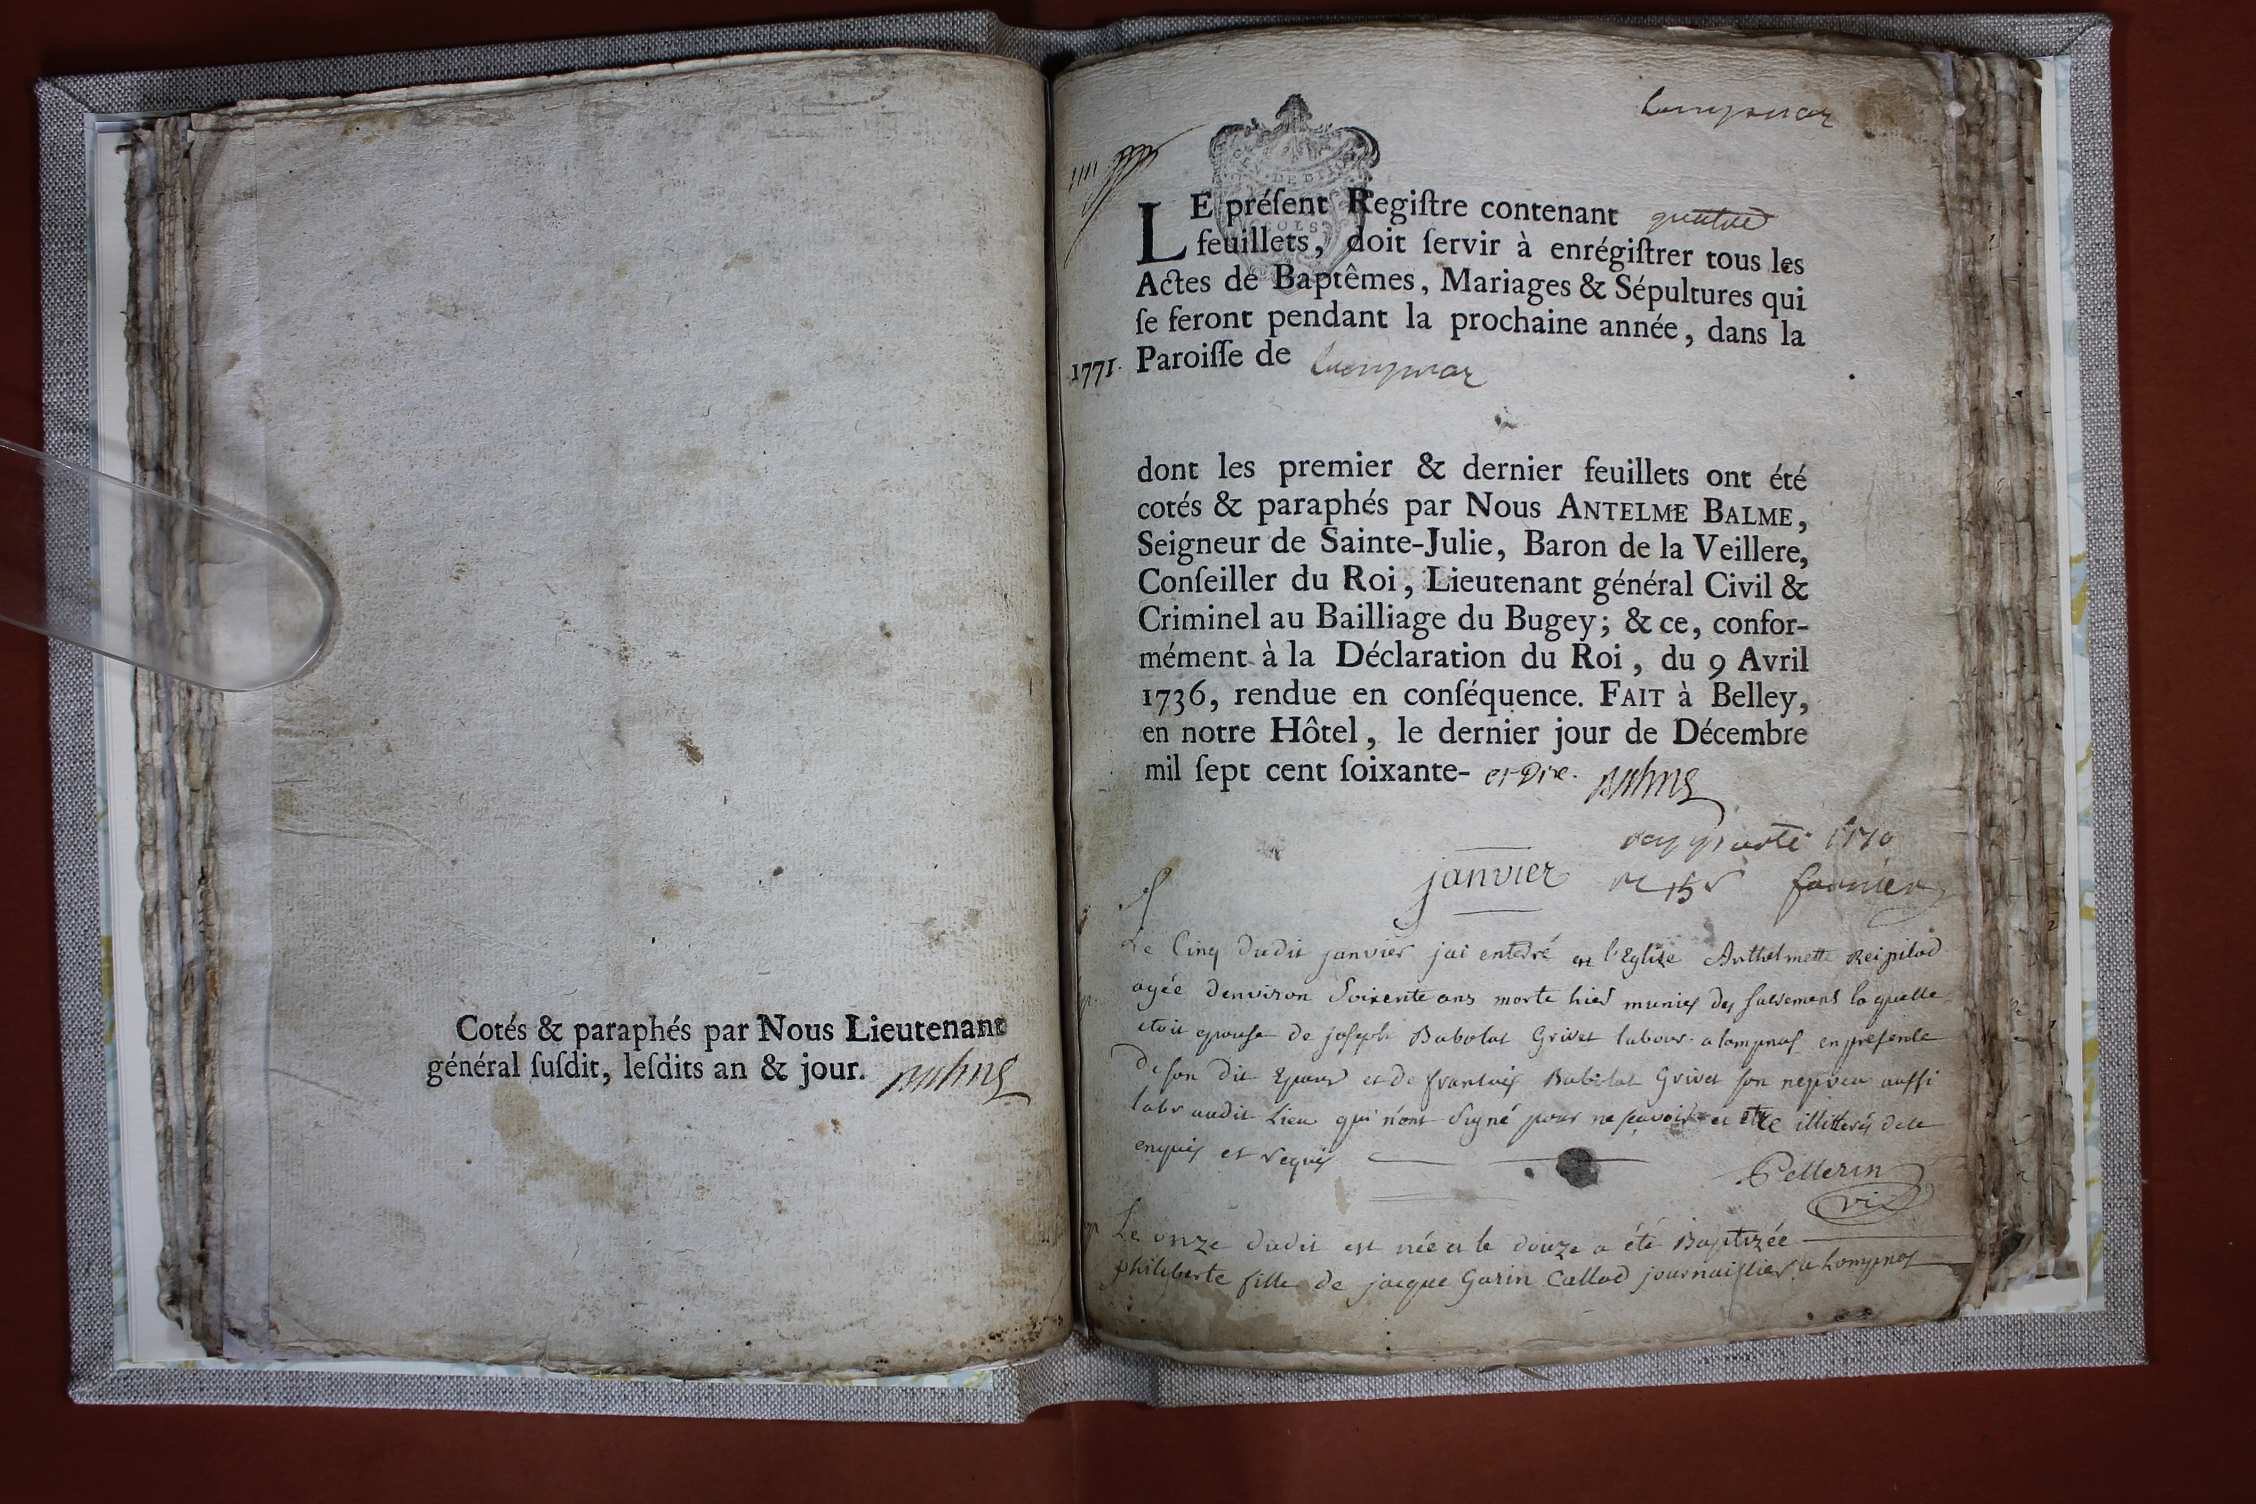 Cotés & paraphés par Nous Lieutenant
général ſuſdit, leſdits an & jour.
LE préſent Regiſtre contenant quatre
feuillets, doit ſervir à enrégiſtrer tous les
Actes de Baptêmes, Mariages & Sépultures qui
ſe feront pendant la prochaine année, dans la
1771. Paroiſſe de
dont les premier & dernier feuillets ont été
cotés & paraphés par Nous ANTELME BALME,
Seigneur de Sainte-Julie, Baron de la Veillere,
Conſeiller du Roi, Lieutenant général Civil &
Criminel au Bailliage du Bugey; & ce, confor-
mément à la Déclaration du Roi, du 9 Avril
1736, rendue en conſéquence. FAIT à Belley,
en notre Hôtel, le dernier jour de Décembre
mil ſept cent ſoixante- et dix.
janvier
Le Cinq dudit janvier jai enterré en l'Eglize Anthelmette
agée denviron Soixente ans morte hier munies des laquelle
etoit epouse de joseph Babolat Grivet labour. a lompnas en presente
de son dit Epoux et de francois Babolat Grivet son nepveu aussi
labr audit Lieu qui n'ont Signé pour ne scavoir et etre illitterés de ce
enquis et requis
Pellerin
vic
Le onze dudit est née et le douze a été Baptizée
philiberte fille de jacque Garin Callod journaillier a Lompnas